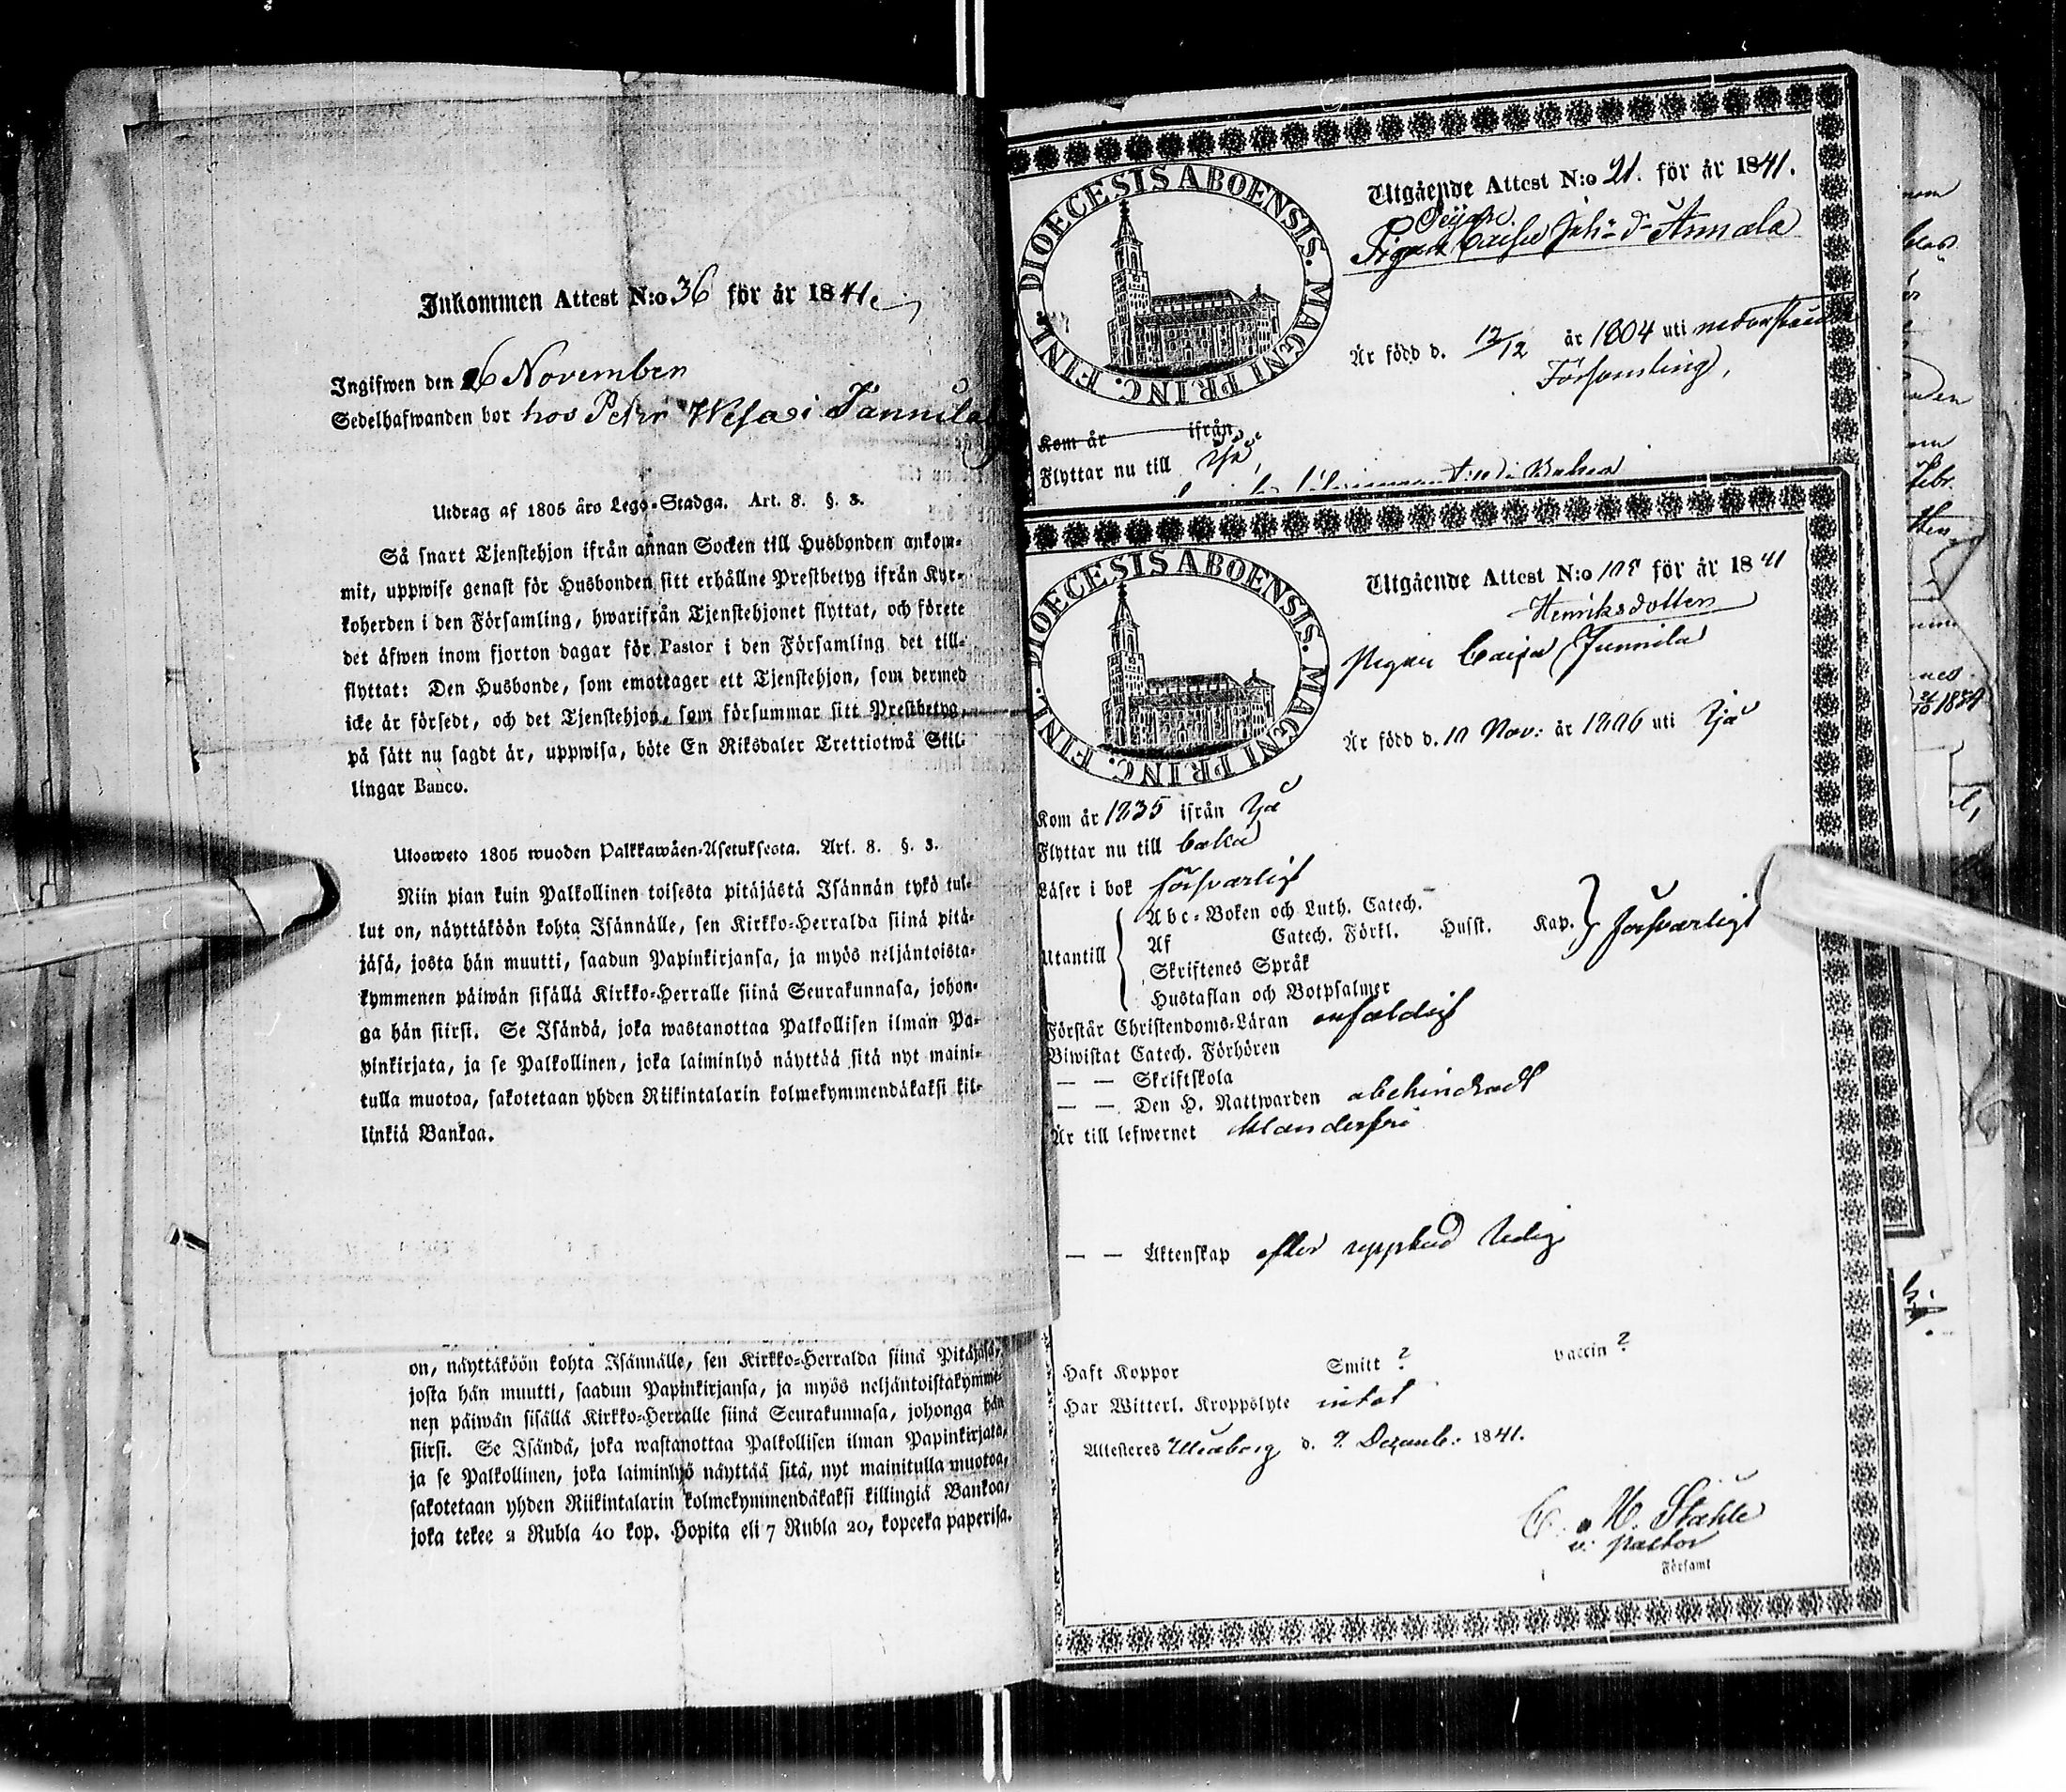 Inkommen Attest N:o 36 för år 1841.
Ingifwen den 6 November
Sedelhafwanden bor hos Petter Wesa i Jannila
Utdrag af 1805 års Lego-Stadga. Art. 8. §. 3.
Så snart Tjenstehjon ifrån annan Socken till Husbonden ankom-
mit, uppwise genast för Husbonden sitt erhållne Prestbetyg ifrån Kyr-
koherden i den Församling, hwarifrån Tjenstehjonet flyttat, och förete
det äfwen inom fjorton dagar för Pastor i den Församling det till-
flyttat: Den Husbonde, som emottager ett Tjenstehjon, som dermed
icke är försedt, och det Tjenstehjon, som försummar sitt Prestbetyg,
på sätt nu sagdt är, uppwisa, böte En Riksdaler Trettiotwå Skil-
lingar Banco.
Ulosweto 1805 wuoden Palkkawäen-Asetuksesta. Art. 8. §. 3.
Niin pian kuin Palkollinen toisesta pitäjästä Isännän tykö tul-
lut on, näyttäköön kohta Isännälle, sen Kirkko-Herralda siinä pitä-
jäsä, josta hän muutti, saadun Papinkirjansa, ja myös neljäntoista-
kymmenen päiwän sisällä Kirkko-Herralle siinä Seurakunnasa, johon-
ga hän siirsi. Se Isändä, joka wastanottaa Palkollisen ilman Pa-
pinkirjata, ja se Palkollinen, joka laiminlyö näyttää sitä nyt maini-
tulla muotoa, sakotetaan yhden Riikintalarin kolmekymmendäkaksi kil-
linkiä Bankoa.
on, näyttäköön kohta Isännälle, sen Kirkko-Herralda siinä Pitäjäsä,
josta hän muutti, saadun Papinkirjansa, ja myös neljäntoistakymme-
nen päiwän sisällä Kirkko-Herralle siinä Seurakunnasa, johonga hän
siirsi. Se Isändä, joka wastanottaa Palkollisen ilman Papinkirjata,
ja se Palkollinen, joka laiminlyö näyttää sitä, nyt mainitulla muotoa,
sakotetaan yhden Riikintalarin kolmekymmendäkaksi killingiä Bankoa,
joka tekee 2 Rubla 40 kop. Hopita eli 7 Rubla 20, kopeeka paperisa.
DIOECESIS ABOENSIS. MAGNI PRINC. FINL.
Utgående Attest N:o 21. för år 1841.
Pigan Caisa Joh:s d:r Annala
Är född d. 12/12 år 1804 uti nedanstående
Församling,
Kom år ifrån
Flyttar nu till
DIOECESIS ABOENSIS. MAGNI PRINC. FINL.
Utgående Attest N:o 108 för år 1841
Henriksdotter
Pigan Caisa Junnila
Är född d. 10 Nov: år 1806 uti Ijå
Kom år 1835 ifrån Ijå
Flyttar nu till baka
Läser i bok försvarligt
Utantill
Abc-Boken och Luth. Catech.
Af Catech. Förkl. Hufst. Kap. försvarligt
Skriftenes Språk
Hustaflan och Botpsalmer
Förstår Christendoms-Läran enfaldigt
Biwistat Catech. Förhören
— — Skriftskola
— — Den H. Nattwarden obehindradt
Är till lefwernet klanderfri
— — Äktenskap efter uppbud ledig
Haft Koppor Smitt ? vaccin ?
Har Witterl. Kroppslyte intet
Attesteres Uleåborg d. 9. Decemb: 1841.
C. W. Ståhle
v. pastor
Församl